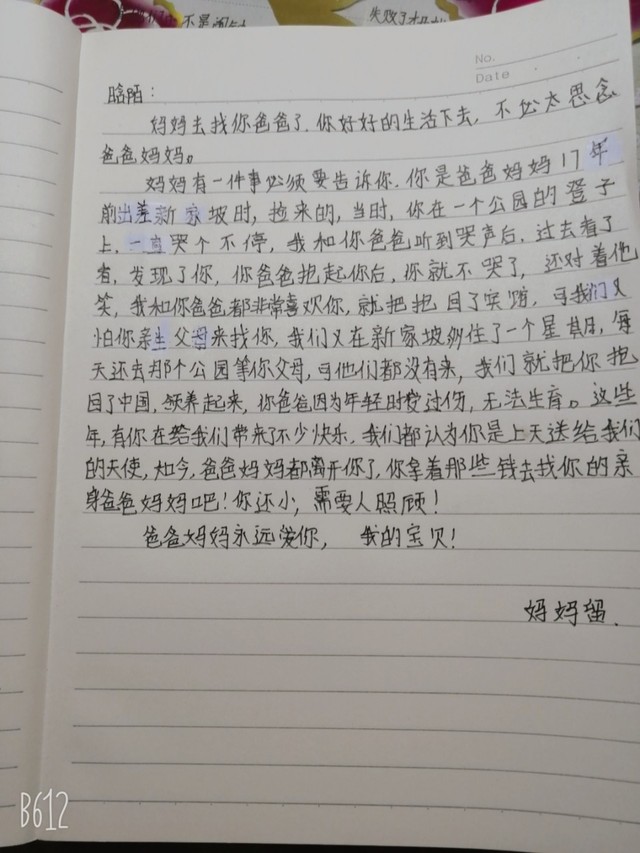 不是闹
失败了
No.
Date
晗陌：
妈妈去找你爸爸了，你好好的生活下去，不必太思念
爸爸妈妈。
妈妈有一件事必须要告诉你，你是爸爸妈妈17年
前出差新家坡时，捡来的，当时，你在一个公园的凳子
上，一直哭个不停，我和你爸爸听到哭声后，过去看了
看，发现了你，你爸爸抱起你后，你就不哭了，还对着他
笑，我和你爸爸都非常喜欢你，就把抱回了宾馆，可我们又
怕你亲生父母来找你，我们又在新家坡多住了一个星期，每
天还去那个公园等你父母，可他们都没有来，我们就把你抱
回了中国，领养起来，你爸爸因为年轻时受过伤，无法生育。这些
年，有你在给我们带来了不少快乐，我们都认为你是上天送给我们
的天使，如今，爸爸妈妈都离开你了，你拿着那些钱去找你的亲
身爸爸妈妈吧！你还小，需要人照顾！
爸爸妈妈永远爱你，我的宝贝！
妈妈留.
B612